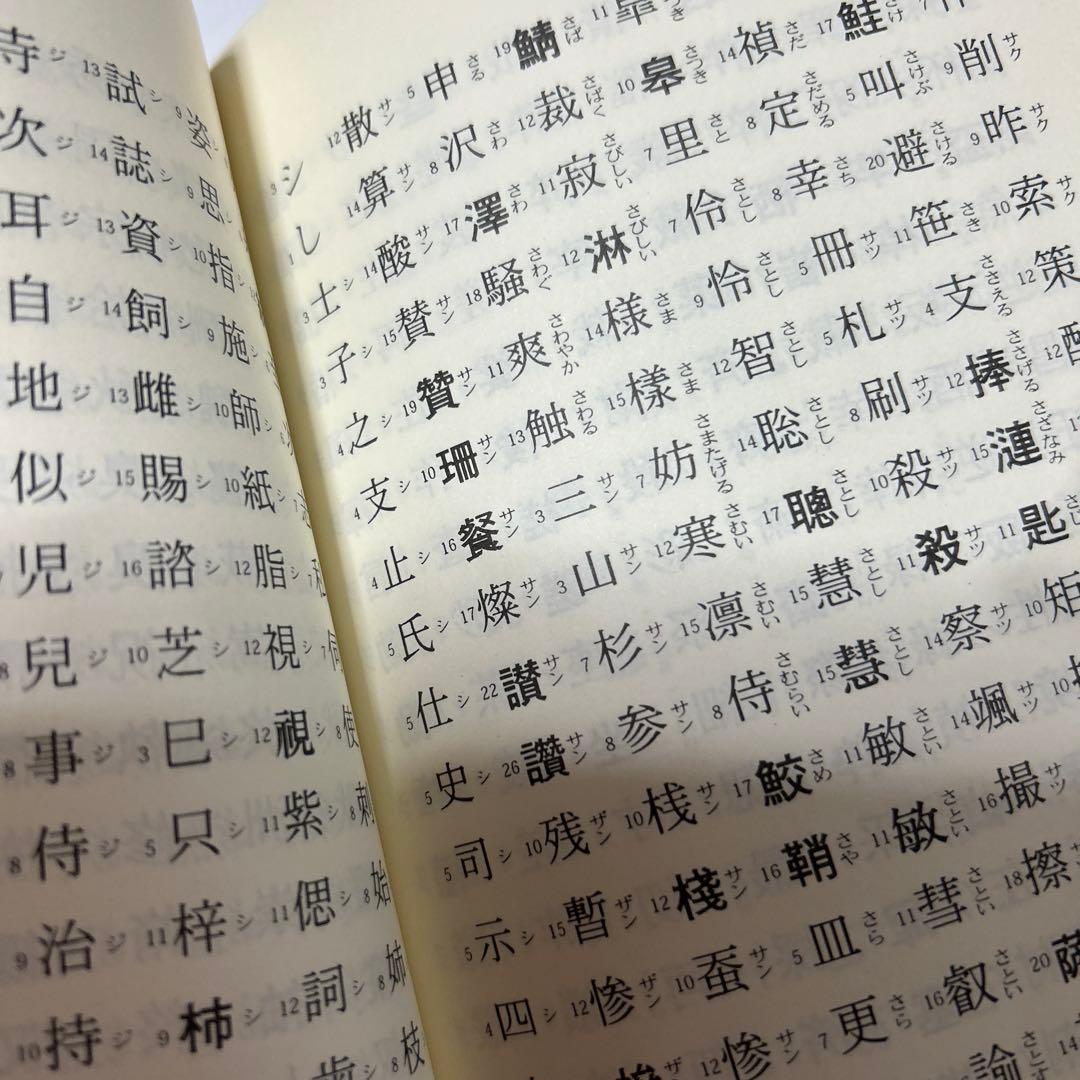 9削サク 9昨サク 10索サク 12策
17鮭さけ 5叫さけぶ 20避さける 11笹さき 4支ささえる 12捧ささげる 15漣さざなみ 11匙さじ 10矩
14禎さだ 8定さだめる 8幸さち 5冊サツ 5札サツ 8刷サツ 10殺サツ 11殺サツ 14察サツ 14颯サツ 16撮サツ 18擦 20薩
10皋さつき 7里さと 7伶さとし 9怜さとし 12智さとし 14聡さとし 17聰さとし 15慧さとし 15慧さとし 11敏さとい 11敏さとい 11彗さとい 16叡さとい 諭
19鯖さば 12裁さばく 11寂さびしい 12淋さびしい 14様さま 15樣さま 7妨さまたげる 12寒さむい 15凛さむい 8侍さむらい 17鮫さめ 16鞘さや 5皿さら 7更さら
5申さる 8沢さわ 17澤さわ 18騒さわぐ 11爽さわやか 13触さわる 3三サン 3山サン 7杉サン 8参サン 10桟サン 12棧サン 10蚕サン 12惨ザン
12散サン 14算サン 14酸サン 15賛サン 19贊サン 10珊サン 16餐サン 17燦サン 22讃サン 26讚サン 10残ザン 15暫ザン 12惨ザン
3シ 1し 3士 3子シ 4之シ 4支シ 4止シ 5氏シ 5仕シ 5史シ 5司シ 5示シ 4四シ
7私 7伺 8使 8刺 8始 8姉 8枝
9姿シ 9思シ 10指シ 9施シ 10師シ 10紙シ 12脂シ 12視シ 12視シ 11紫シ 11偲シ 12詞シ 歯
13試シ 14誌シ 13資シ 14飼シ 13雌シ 15賜シ 16諮シ 10芝シ 3巳シ 5只シ 11梓シ 9柿シ
寺ジ 次ジ 耳ジ 自ジ 地ジ 似ジ 児ジ 8兒ジ 8事ジ 8侍ジ 9治ジ 10持ジ